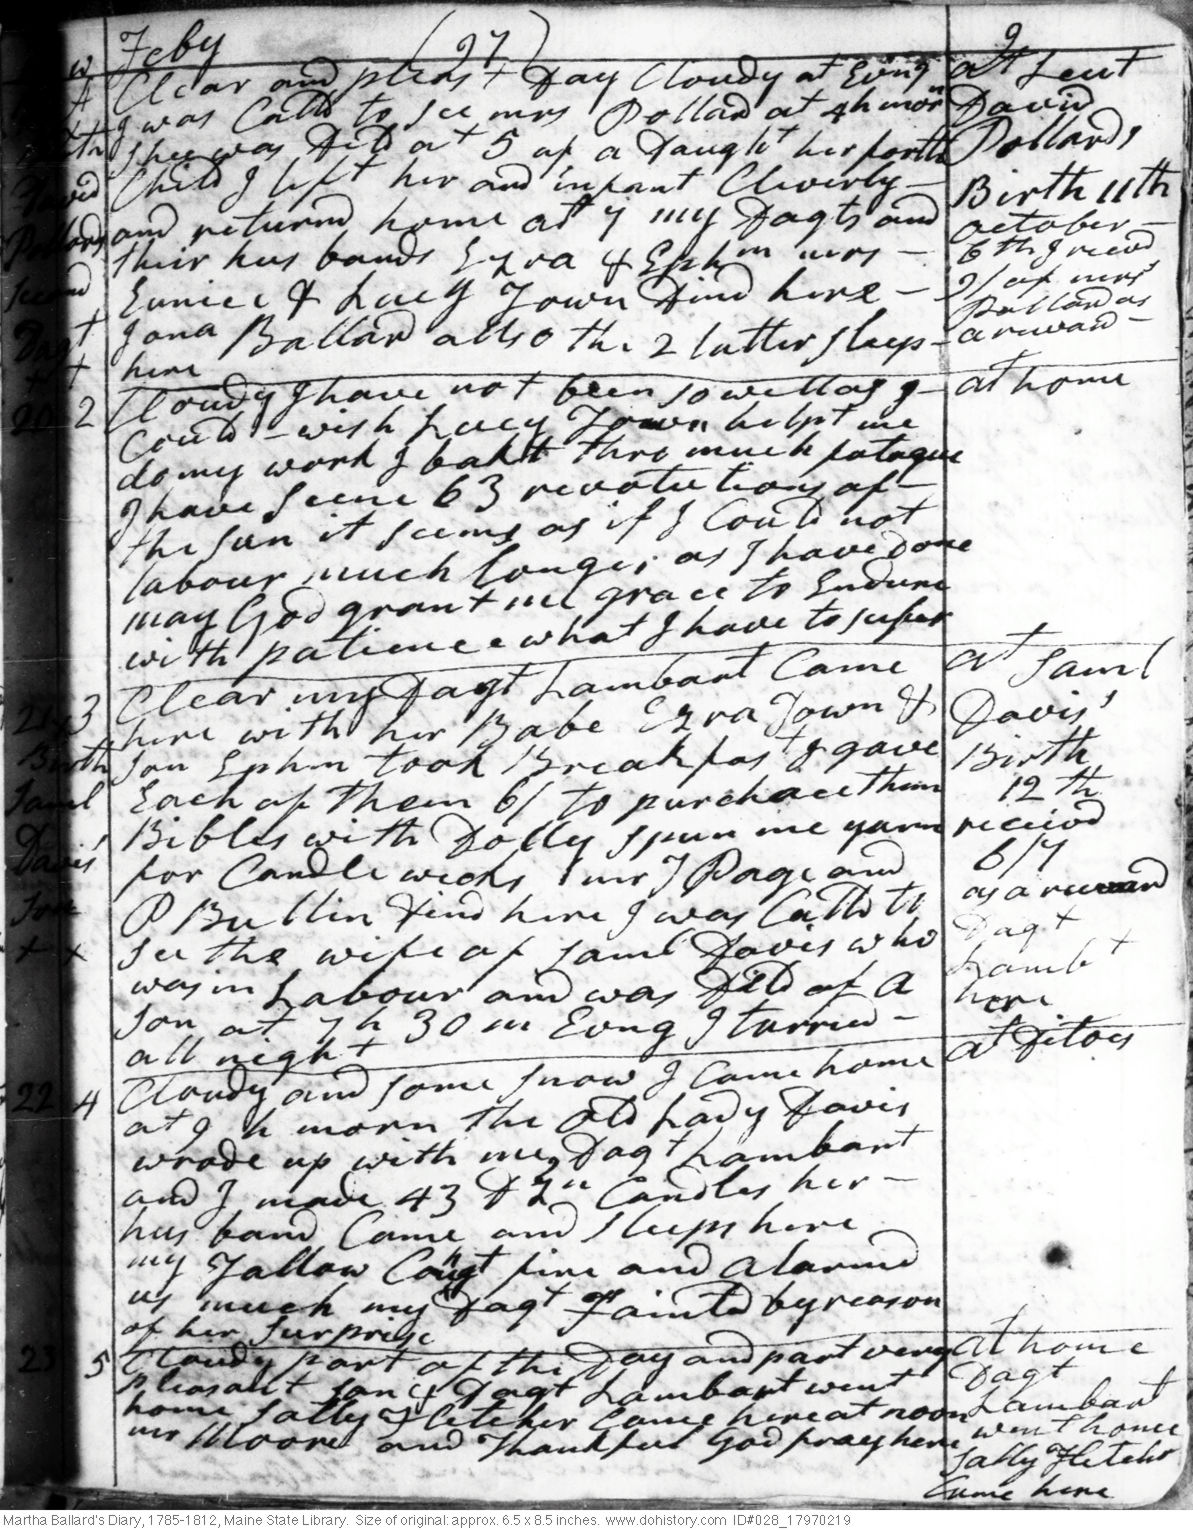 Feby (97) 2
Clear and pleast Day Cloudy at Evng
I was Calld to See mrs Pollard at 4h morn
Shee was Deld at 5 of a Daught her forth
Child I left her and infant Cleverly –
and returnd home at 9 my Dagts and
their hus bands Ezra & Ephm mrs –
Eunice & Lucy Town Dind here –
Jona Ballard allso the 2 latter sleep –
here
at Leut
David
Pollards
Birth 11th
october –
6th I receivd
9/ of mrs
Pollard as
a reward –
Birth
David
Pollards
second
Dagt
20 2
Cloudy I have not been so well as I –
Could – wish Lucy Town helpt me
do my work I bakt thro much fatague
I have Seene 63 revolutions of –
the Sun it Seems as if I Could not
labour much longer as I have Done
may God grant me grace to Endure
with patience what I have to suffer
at home
21 3
Birth
Saml
Davis'
Sone
x x
Clear my Dagt Lambart Came
here with her Babe Ezra Town &
Son Ephm took Breakfast I gave
Each of them 6/ to purchace them
Bibles with Dolly spun me yarn
for Candle weeks mr J Page and
P Bullin Dind here I was Calld to
See the wife of Saml Davis who
was in Labour and was Deld of a
Son at 7 h 30 m Evng I tarried –
all night
at Saml
Davis'
Birth
12 th
receivd
6/7
as a reward
Dagt
Lambt
here
22 4
Cloudy and some snow I came home
at 9 h morn the old Lady Davis
wrode up with me Dagt Lambart
and I made 43 Dzn Candles her –
hus band Came and sleeps here
my Tallow Caught fire and alarmd
us much my Dagt Fainted by reason
of her Surprise
at Ditoes
23 5
Cloudy part of the Day and part very
pleasant Son & Dagt Lambart went
home Sally Fletcher Came here at noon
mr Moore and Thankful God fray here
at home
Dagt
Lambart
went home
Sally Fletchr
Came here
Martha Ballard's Diary, 1785-1812, Maine State Library. Size of original: approx. 6.5 x 8.5 inches. www.dohistory.com ID#028_17970219